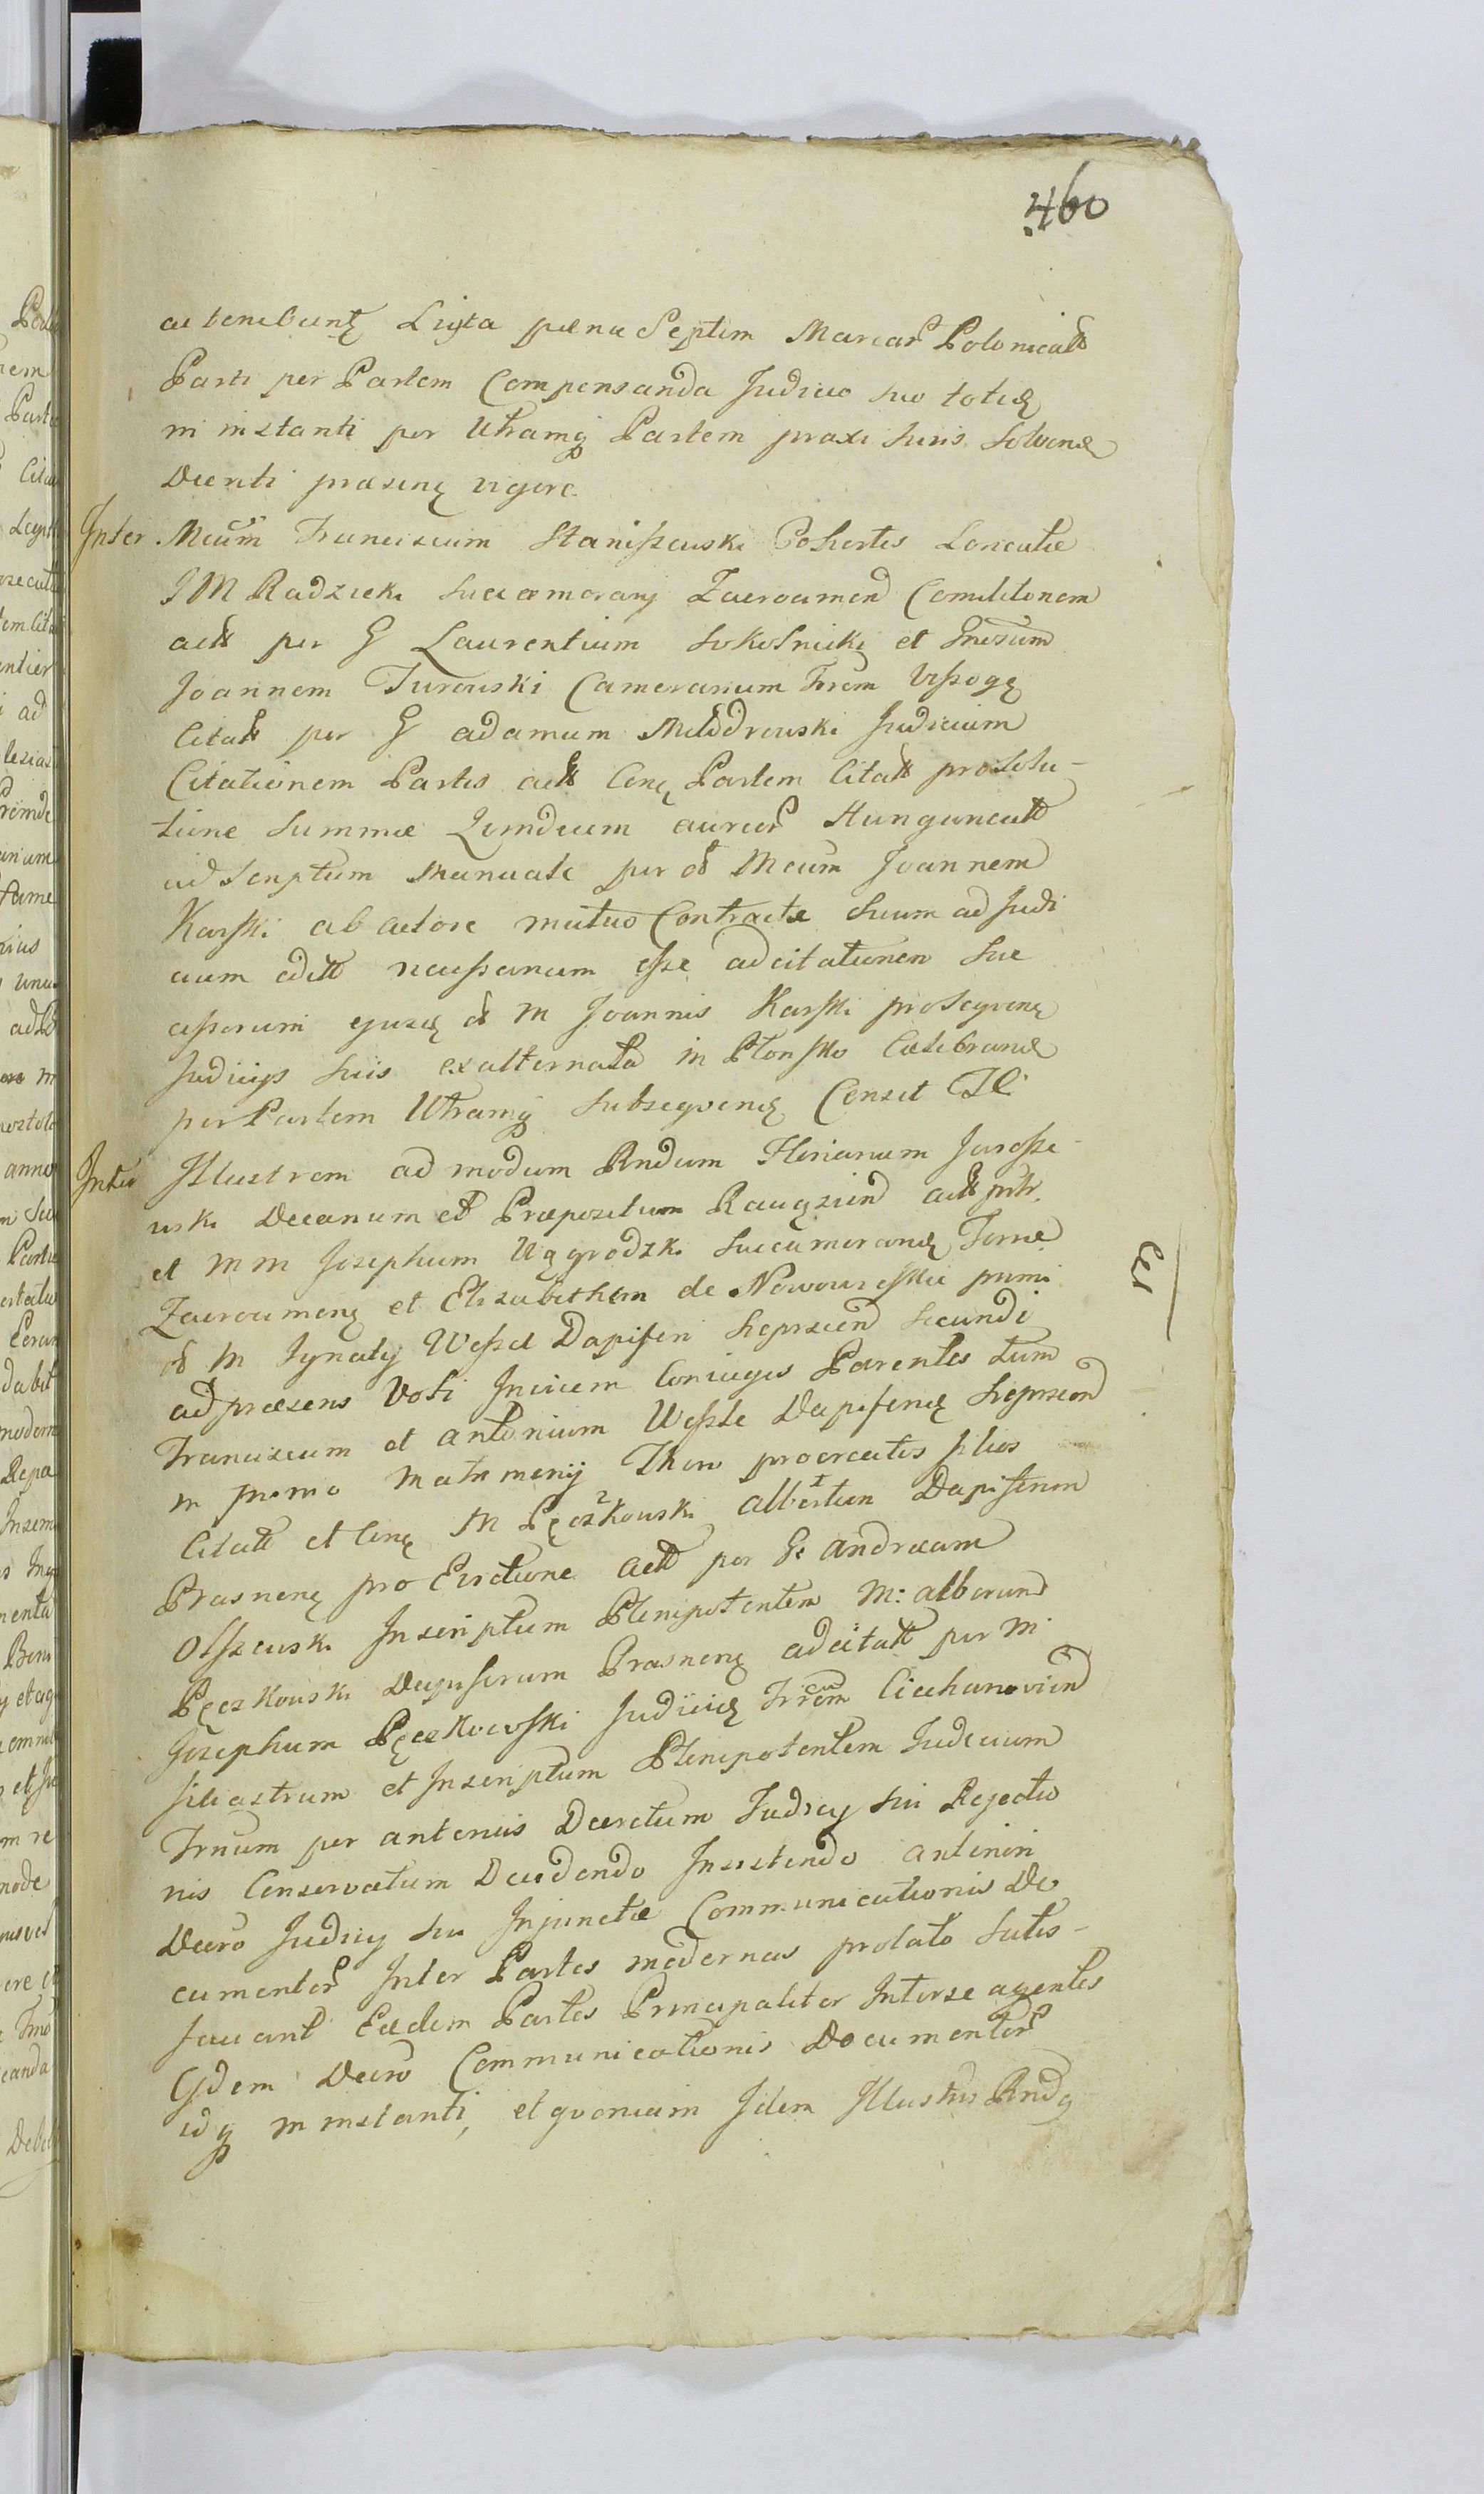 460
ac tenebuntꝫ Luita pæna Septem Marcar Polonicalt
Parti per Partem Compensanda Judicio suo toties
in instanti per Utramq Partem praxi Juris Solvend
Decreti præsenꝫ vigore.
Inter Mcum Franciscum Staniszewski Cohortis Loricatæ
I M Radzicki Succamerarij Zacrocimen Comilitonem
act per G Laurentium Sokolnicki et Gnosum
Joannem Turowski Camerarium Trem Vissogꝫ
Citat per G Adamum Modrowski Judicium
Citationem Partis act Cenꝫ Partem Citat pro Solu-
tione Summæ Qundecim aureor Hungarical
ad Scriptum Manuale per o Mcum Joannem
Karski ab actore mutuo Contractæ Suum ad Judi
cium adcit necessarium esse ad citationem Suc
cessorum ejusd o M Joannis Karski prosequenꝫ
Judicijs Suis ex alternata in Płonsko Celebrand
per Partem Utramq Subsequend Censet
Inter Illustrem ad modum Rndum Florianum Jarosze-
wski Decanum et Præpositum Raugzien act
et M M Josephum Uzgrodzki Succamerarid Terræ
Zacrocimenꝫ et Elisabetham de Noworuskie primi
o M Ignatij Wessel Dapiferi Sieprcien Secundi
ad præsens Voti Invicem Coniuges Parentes tum
Franciscum et Antonium Wessle Dapiferid Sieprcen
in primo Matrimonij Thoro procreatos filios
Citatt et Cenꝫ M Pęczkowski Albertum Dapiferum
Prasnenꝫ pro Evictione act per G Andream
Olszewski Inscriptum Plenipotentem M: Albertum
Pęczkowski Dapiferum Prasnenꝫ adcitatt per M
Josephum Pęczkowski Judicid Trrem Ciechanovien
filiastrum et Inscriptum Plenipotentem Judicium
Trnum per anterius Decretum Judicij Sui Rejectio
nis Conservatum Decidendo Insistendo anteriori
Decro Judicij Sui Injunctæ Communicationis Do
cumentor Inter Partes modernas prolato Satis-
faciant Eædem Partes Principaliter Interse agentes
Eidem Decro Communicationis Documentor
idq in instanti, et qvoniam Idem Illustris Rndꝫ